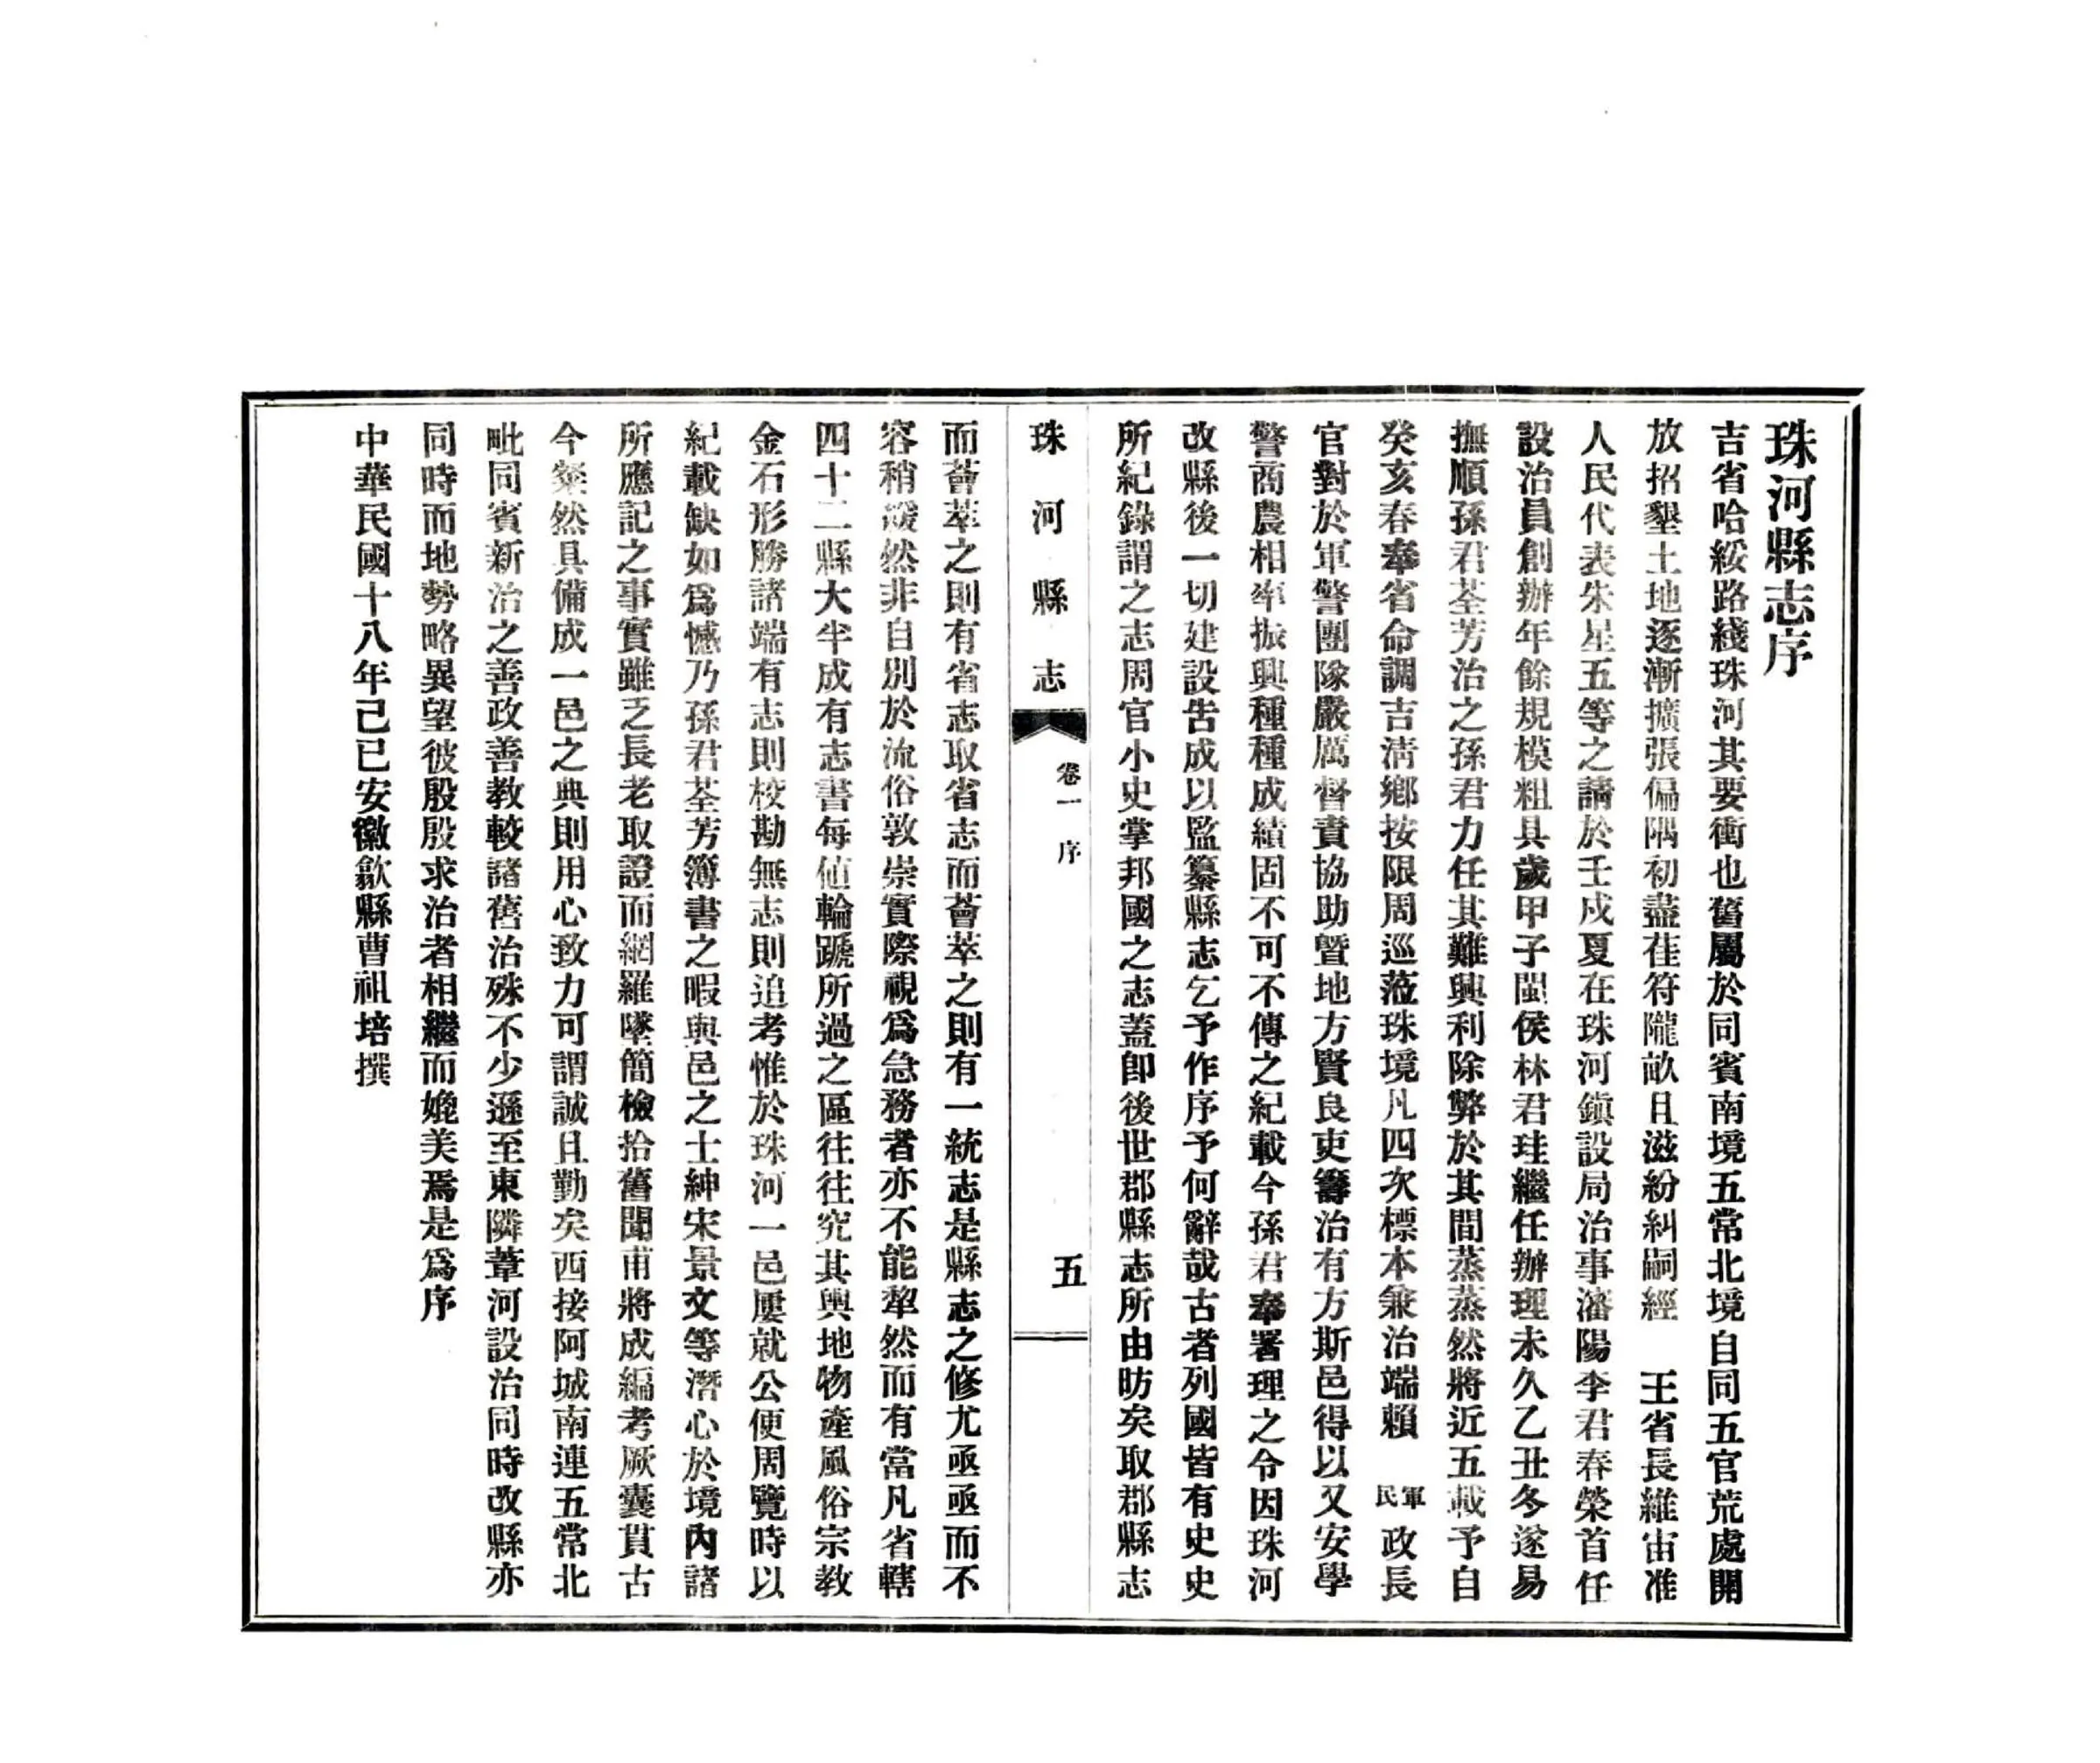 珠河縣志序
吉省哈綏路綫珠河其要衝也舊屬於同賓南境五常北境自同五官荒處開
放招墾土地逐漸擴張偏隅初盡萑苻隴畝且滋紛糾嗣經 王省長維宙准
人民代表朱星五等之請於壬戍夏在珠河鎮設局治事瀋陽李君春榮首任
設治員創辦年餘規模粗具歲甲子閩侯林君珪繼任辦理未久乙丑冬遂易
撫順孫君荃芳治之孫君力任其難興利除弊於其間蒸蒸然將近五載予自
癸亥春奉省命調吉淸鄉按限周巡蒞珠境凡四次標本兼治端賴 軍民政長
官對於軍警團隊嚴厲督責協助曁地方賢良吏籌治有方斯邑得以乂安學
警商農相率振興種種成績固不可不傳之紀載今孫君奉署理之令因珠河
改縣後一切建設告成以監纂縣志乞予作序予何辭哉古者列國皆有史史
所紀錄謂之志周官小史掌邦國之志蓋卽後世郡縣志所由昉矣取郡縣志
珠河縣志
卷一 序
五
而薈萃之則有省志取省志而薈萃之則有一統志是縣志之修尤亟亟而不
容稍緩然非自別於流俗敦崇實際視爲急務者亦不能犂然而有當凡省轄
四十二縣大半成有志書每値輪蹏所過之區往往究其輿地物產風俗宗教
金石形勝諸端有志則校勘無志則追考惟於珠河一邑屢就公便周覽時以
紀載缺如爲憾乃孫君荃芳簿書之暇與邑之士紳宋景文等潛心於境內諸
所應記之事實雖乏長老取證而網羅墜簡檢拾舊聞甫將成編考厥囊貫古
今粲然具備成一邑之典則用心致力可謂誠且勤矣西接阿城南連五常北
毗同賓新治之善政善教較諸舊治殊不少遜至東隣葦河設治同時改縣亦
同時而地勢略異望彼殷殷求治者相繼而媲美焉是爲序
中華民國十八年己巳安徽歙縣曹祖培撰